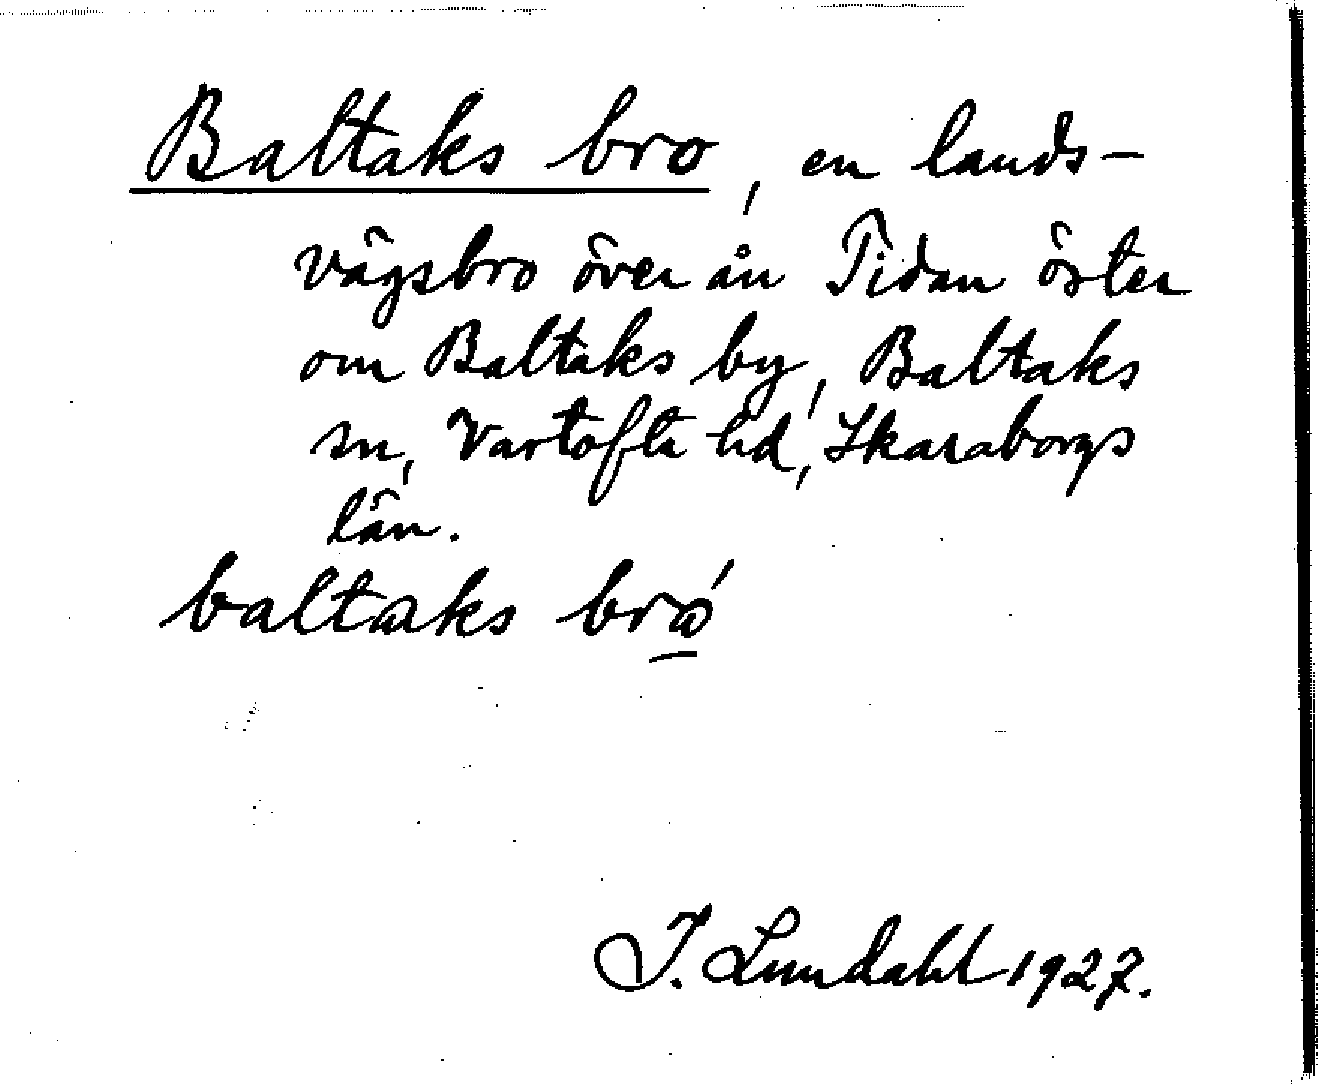 Baltaks bro, en lands-
vägsbro över ån Tidan öster
om Baltaks by, Baltaks
sn, Vartofta hd, Skaraborgs
län.
baltaks bró
I. Lundahl 1927.